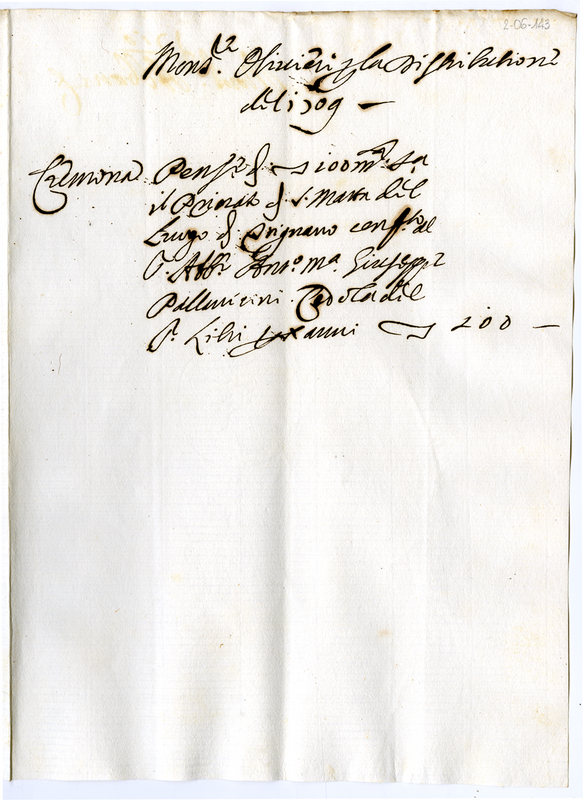 2-06-143
Mons.r Olivieri p la Distributione
del 1709 —
Cremona Pens.e di 100 m.ta Sa
il Priorato di S. Marta del
Luogo di Prignano conf.to al
S. Abb.e Ant.o Ma. Giuseppe
Pallavicini Cedola del
S. Libri anni 100 —